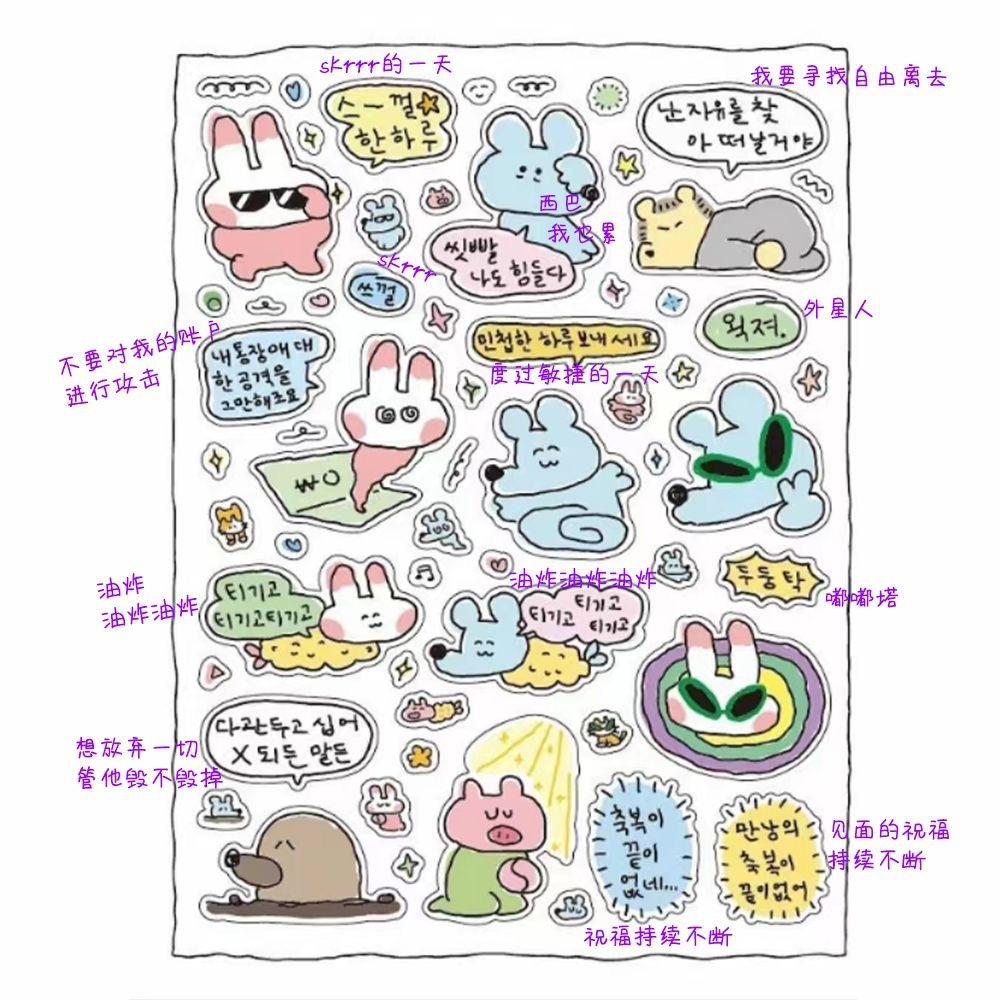 skrrr的一天
스-껄
한하루
我要寻找自由离去
난 자유를 찾
아 떠날거야
西巴
我也累
씻빨
나도 힘들다
skrrr
쓰껄
외星人
왹져.
민첩한 하루 보내세요
度过敏捷的一天
不要对我的账户
进行攻击
내 통장에 대
한 공격을
그만해조요
₩0
油炸
油炸油炸
티기고
티기고티기고
油炸油炸油炸
티기고
티기고 티기고
두둥탁
嘟嘟塔
想放弃一切
管他毁不毁掉
다 관두고 십어
X되든 말든
축복이
끝이
없네...
祝福持续不断
만남의
축복이
끝이없어
见面的祝福
持续不断